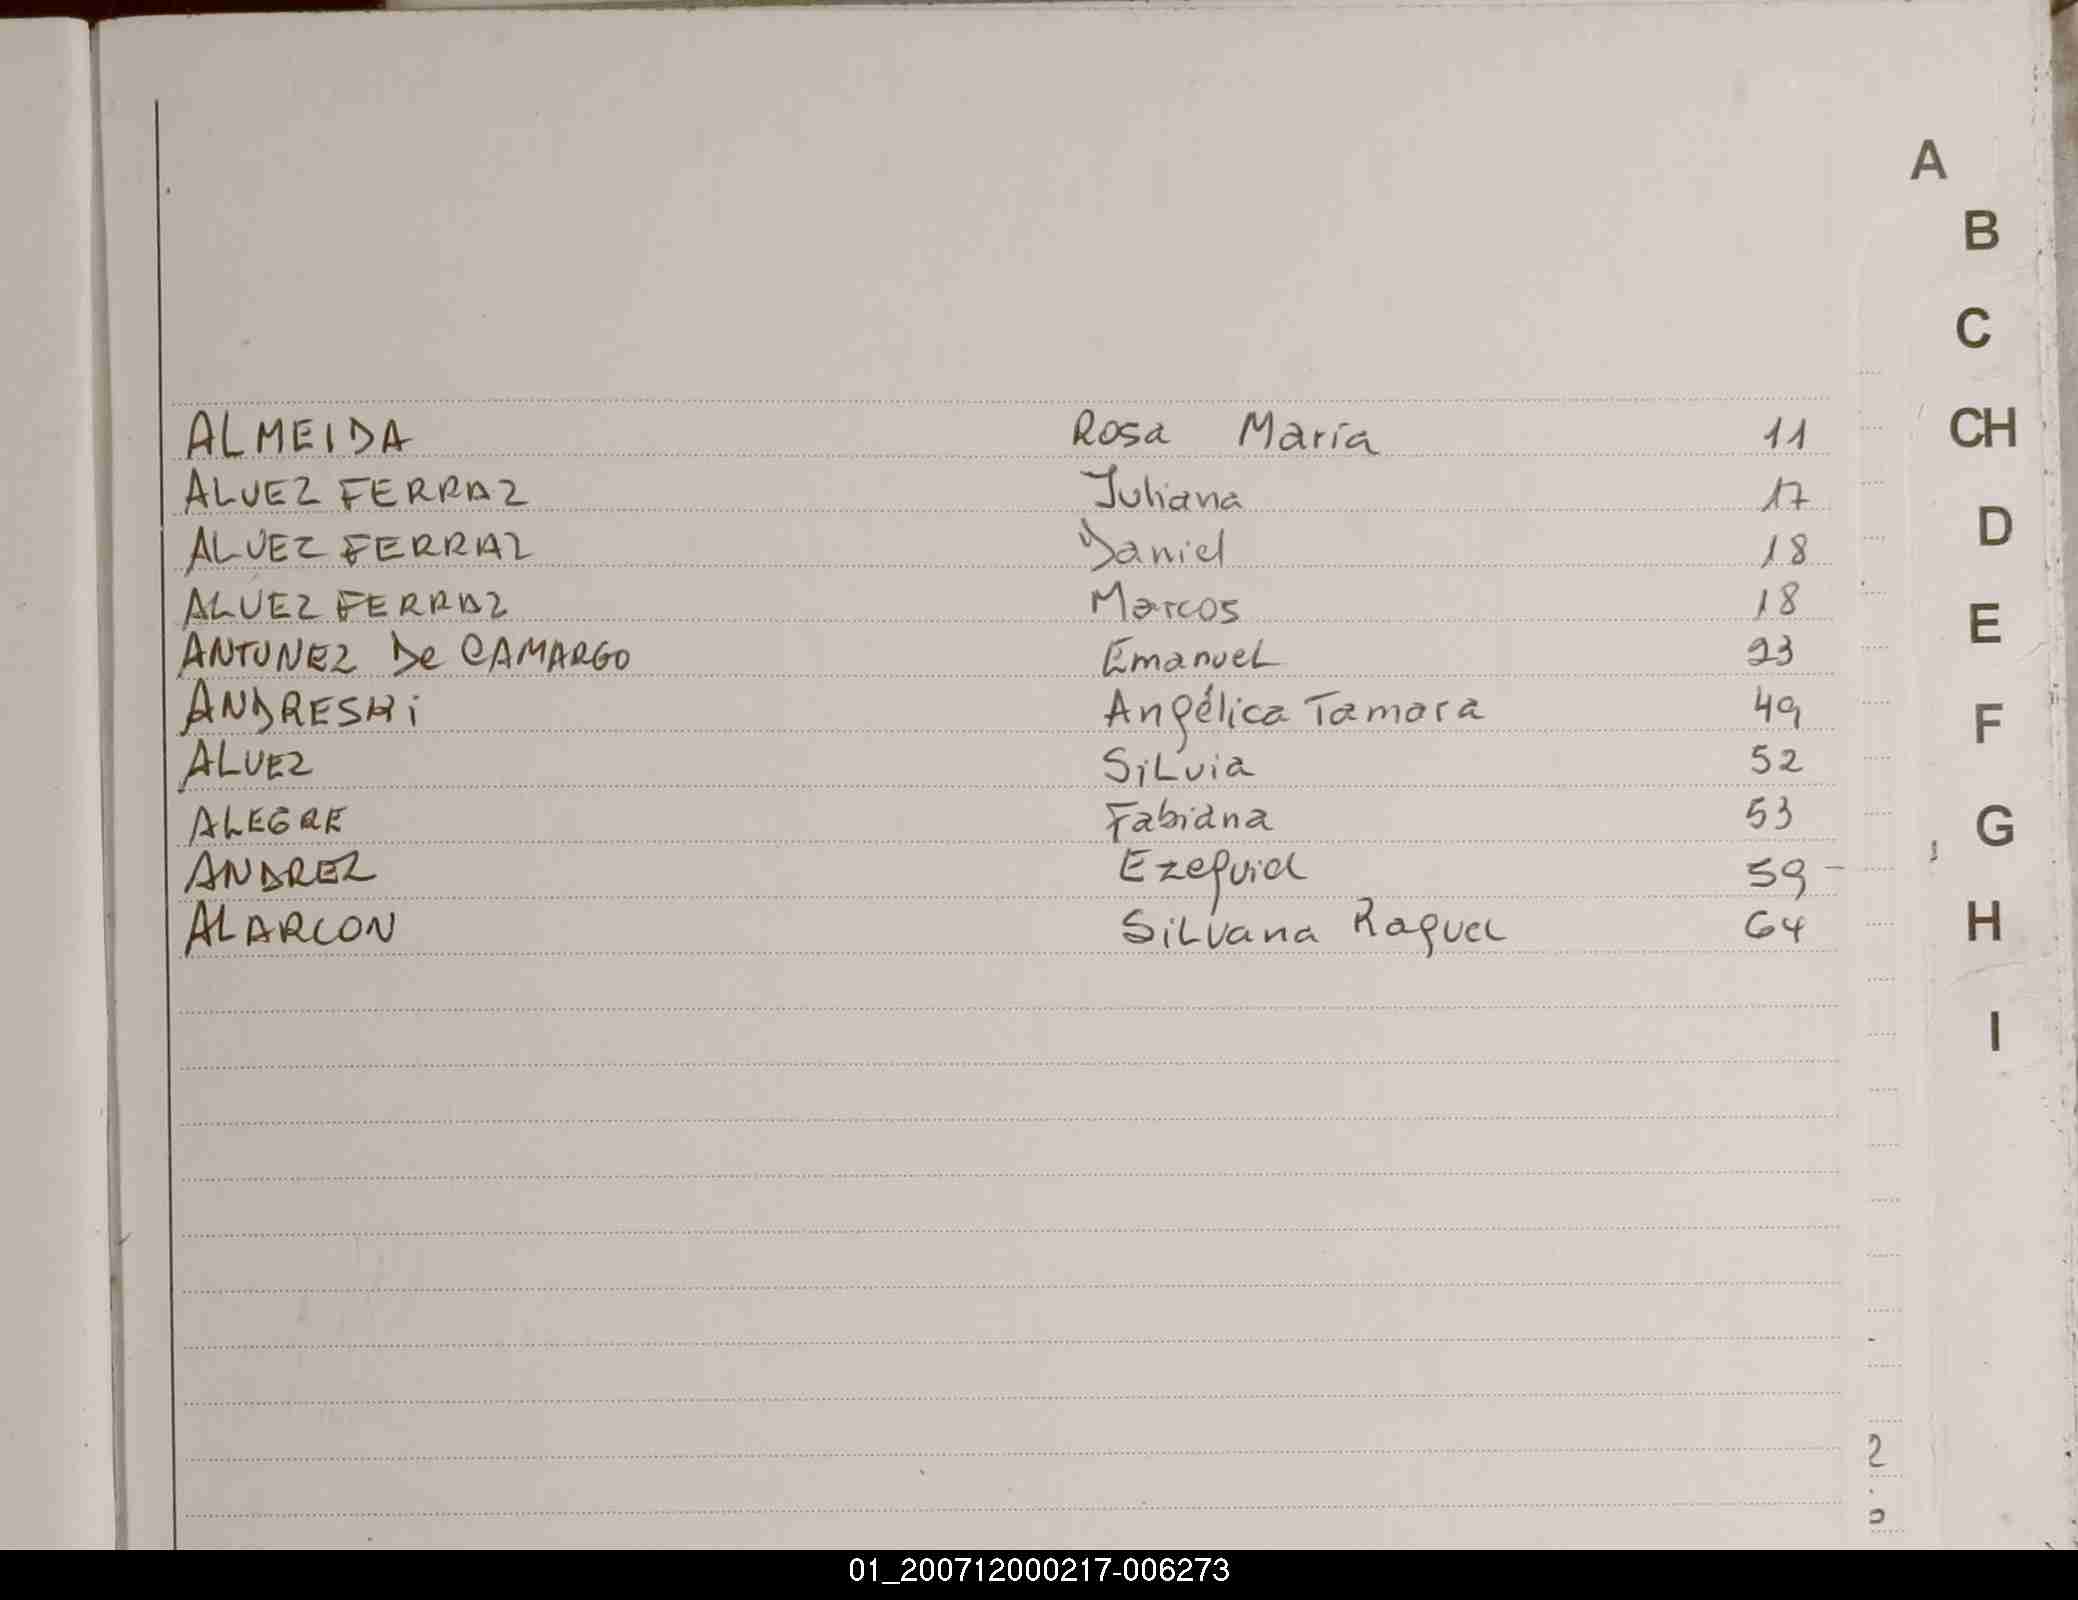 ALMEIDA Rosa María 11
ALVEZ FERRAZ Juliana 17
ALVEZ FERRAZ Daniel 18
ALVEZ FERRAZ Marcos 18
ANTUNEZ De CAMARGO EmanueL 23
ANDRESKi Angélica Tamara 49
ALVEZ SiLvia 52
ALEGRE Fabiana 53
ANDREZ Ezequiel 59 -
ALARCON SiLvana Raquel 64
A
B
C
CH
D
E
F
G
H
I
2
01_200712000217-006273